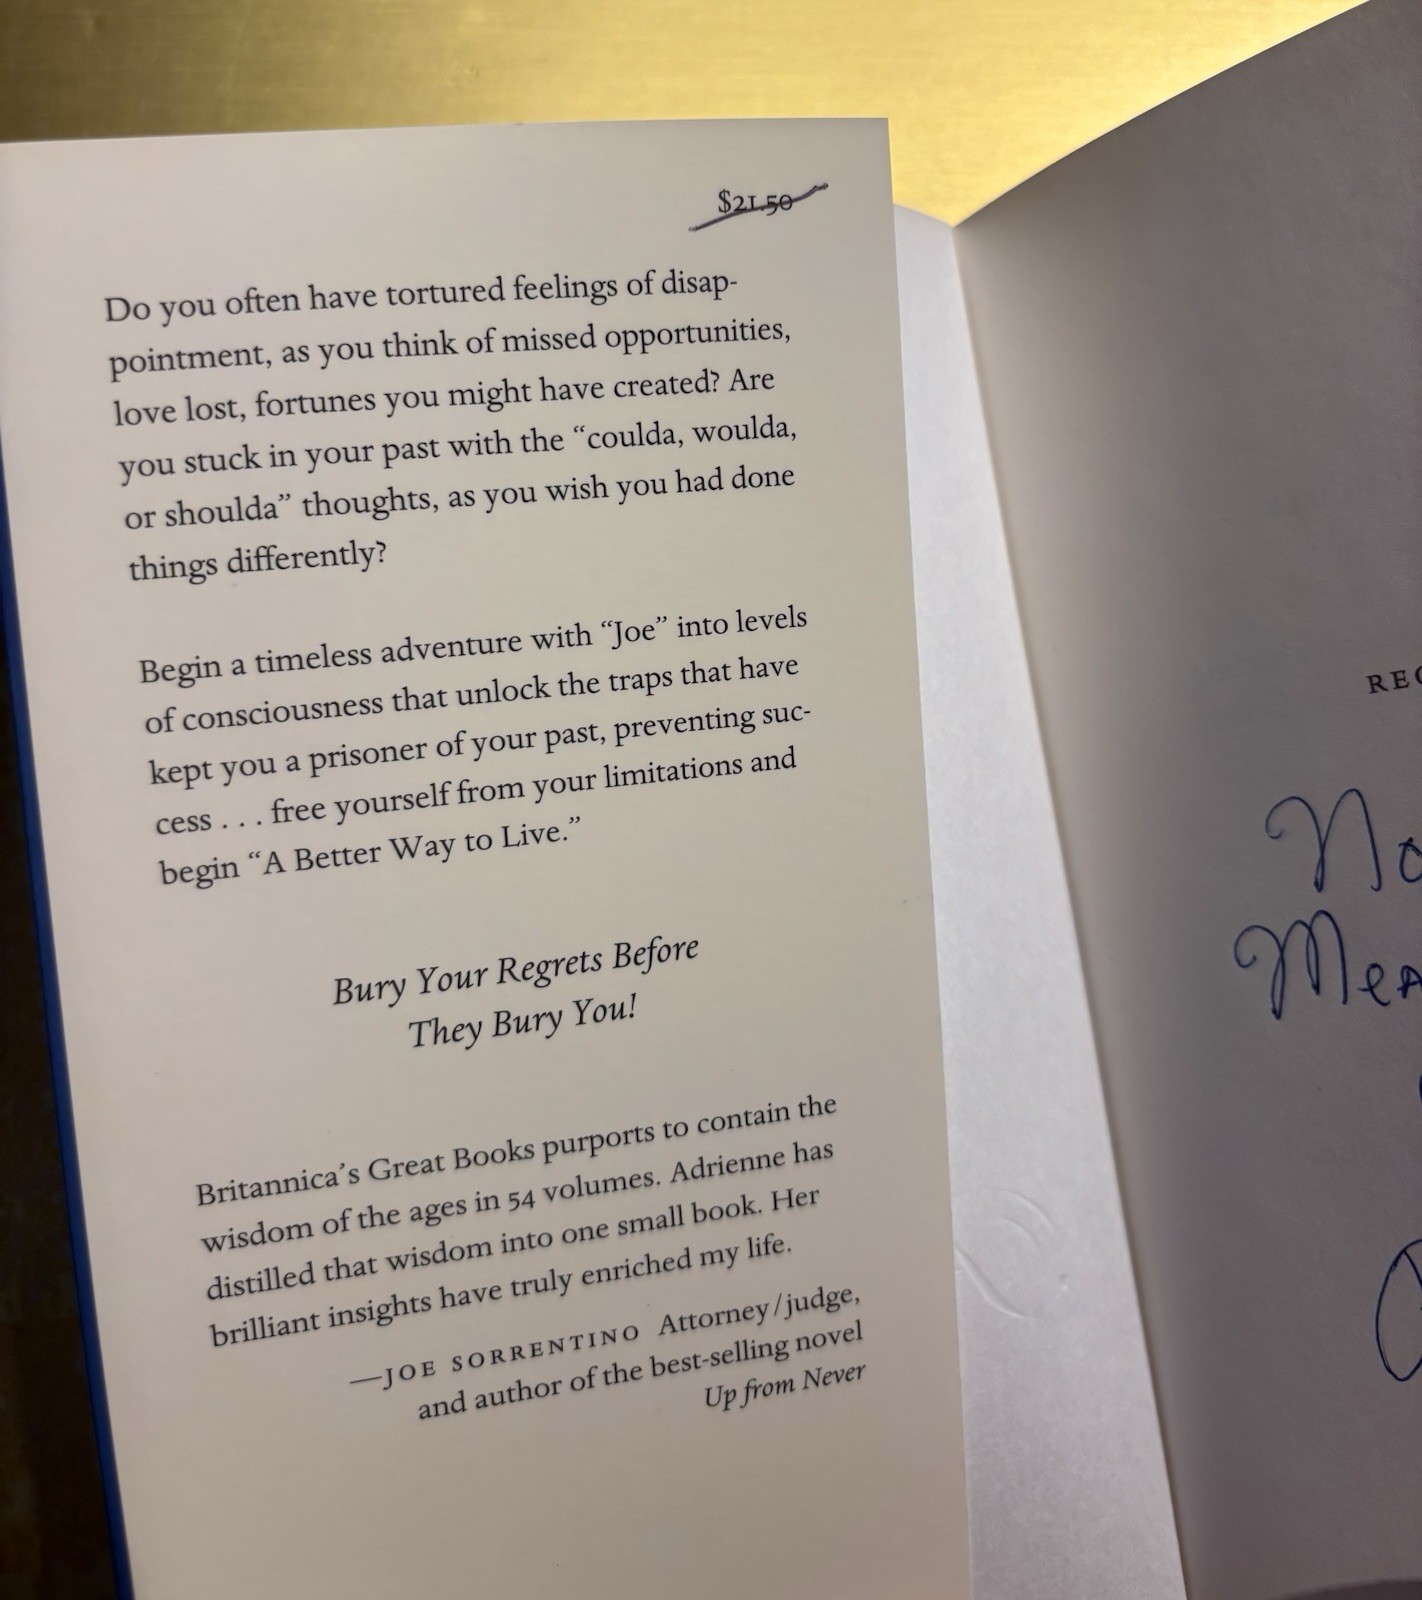 $21.50
Do you often have tortured feelings of disap-
pointment, as you think of missed opportunities,
love lost, fortunes you might have created? Are
you stuck in your past with the “coulda, woulda,
or shoulda” thoughts, as you wish you had done
things differently?
Begin a timeless adventure with “Joe” into levels
of consciousness that unlock the traps that have
kept you a prisoner of your past, preventing suc-
cess . . . free yourself from your limitations and
begin “A Better Way to Live.”
Bury Your Regrets Before
They Bury You!
Britannica’s Great Books purports to contain the
wisdom of the ages in 54 volumes. Adrienne has
distilled that wisdom into one small book. Her
brilliant insights have truly enriched my life.
—JOE SORRENTINO Attorney/judge,
and author of the best-selling novel
Up from Never